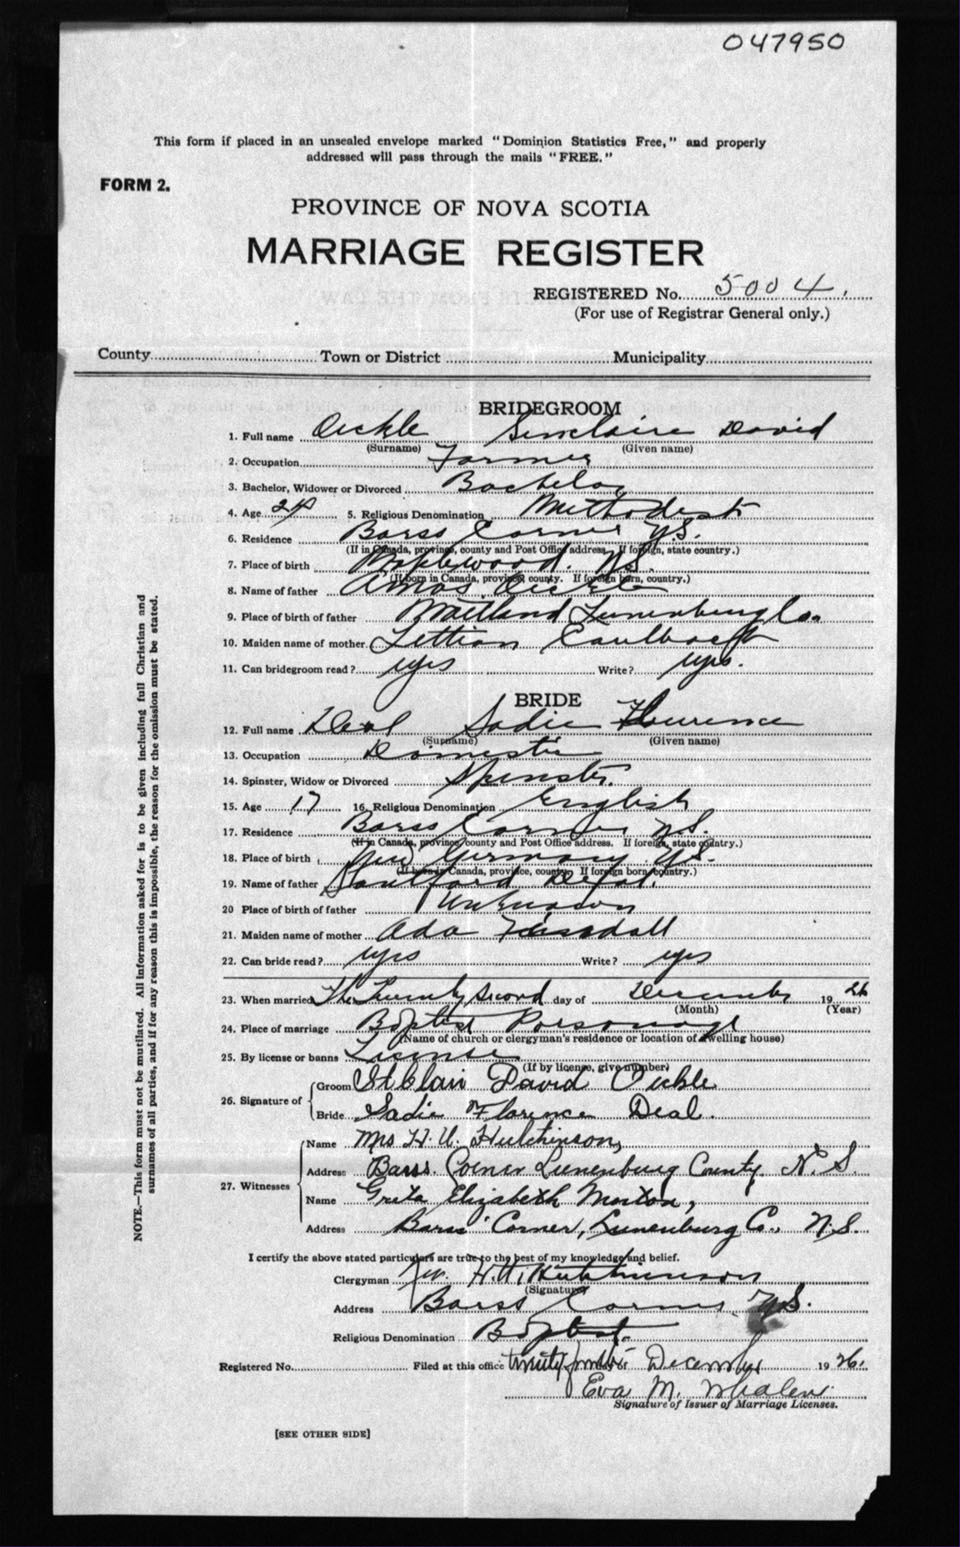 047950
This form if placed in an unsealed envelope marked "Dominion Statistics Free," and properly
addressed will pass through the mails "FREE."
FORM 2.
PROVINCE OF NOVA SCOTIA
MARRIAGE REGISTER
REGISTERED No. 5004.
(For use of Registrar General only.)
County Town or District Municipality
BRIDEGROOM
1. Full name Oickle Sinclaire David
(Surname) (Given name)
2. Occupation Farmer
3. Bachelor, Widower or Divorced Bachelor
4. Age 24 5. Religious Denomination Methodist
6. Residence Barss Corner N.S.
(If in Canada, province, county and Post Office address. If foreign, state country.)
7. Place of birth Maplewood. N.S.
(If born in Canada, province, county. If foreign born, country.)
8. Name of father Amos Oickle
9. Place of birth of father Maitland Lunenburg Co.
10. Maiden name of mother Lettian
11. Can bridegroom read? yes Write? yes.
BRIDE
12. Full name Deal Sadie Flourence
(Surname) (Given name)
13. Occupation Domestic
14. Spinster, Widow or Divorced Spinster.
15. Age 17 16. Religious Denomination English
17. Residence Barss Corner N.S.
(If in Canada, province, county and Post Office address. If foreign, state country.)
18. Place of birth New Germany N.S.
(If born in Canada, province, county. If foreign born, country.)
19. Name of father Deal.
20 Place of birth of father Unknown
21. Maiden name of mother Ada
22. Can bride read? yes Write? yes
23. When married The Twenty Second day of December 19 26
(Month) (Year)
24. Place of marriage Baptist Parsonage
(Name of church or clergyman's residence or location of dwelling house)
25. By license or banns License
(If by license, give number)
26. Signature of Groom St Clair David Oickle
Bride Sadie Florence Deal.
27. Witnesses Name Mrs H. U. Hutchinson,
Address Barss Corner Lunenburg County N. S.
Name Greta Elizabeth Morton,
Address Barss Corner, Lunenburg Co., N.S.
I certify the above stated particulars are true to the best of my knowledge and belief.
Clergyman H. U. Hutchinson
(Signature)
Address Barss Corner N.S.
Religious Denomination Baptist.
Registered No. Filed at this office December 19 26.
Eva M. Whalen.
Signature of Issuer of Marriage Licenses.
[SEE OTHER SIDE]
NOTE.—This form must not be mutilated. All information asked for is to be given including full Christian and
surnames of all parties, and if for any reason this is impossible, the reason for the omission must be stated.